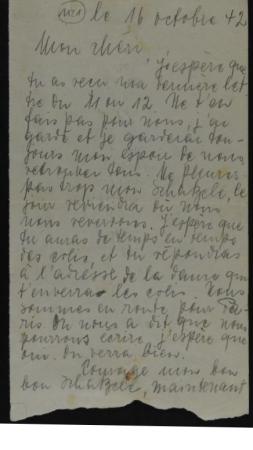 N°1) le 16 octobre 42
Mon chéri
J'espère que
tu as reçu ma dernière let
tre du 11 ou 12. Ne t'en
fais pas pour nous, j'ai
gardé et je garderai tou-
jours mon espoir de nous
retrouver tous. Ne pleure
pas trop mon Schatzele, le
jour reviendra où nous
nous reverrons. J'espère que
tu auras de temps en temps
des colis, et tu répondras
à l'adresse de la dame qui
t'enverra les colis. Nous
sommes en route pour
On nous a dit que nous
pourrons écrire j'espère que
oui. On verra bien.
Courage mon bon
bon Schatzele, maintenant